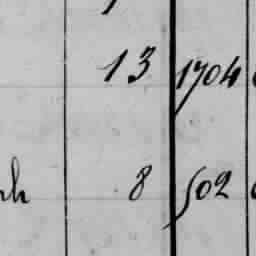 13 1704
8 502